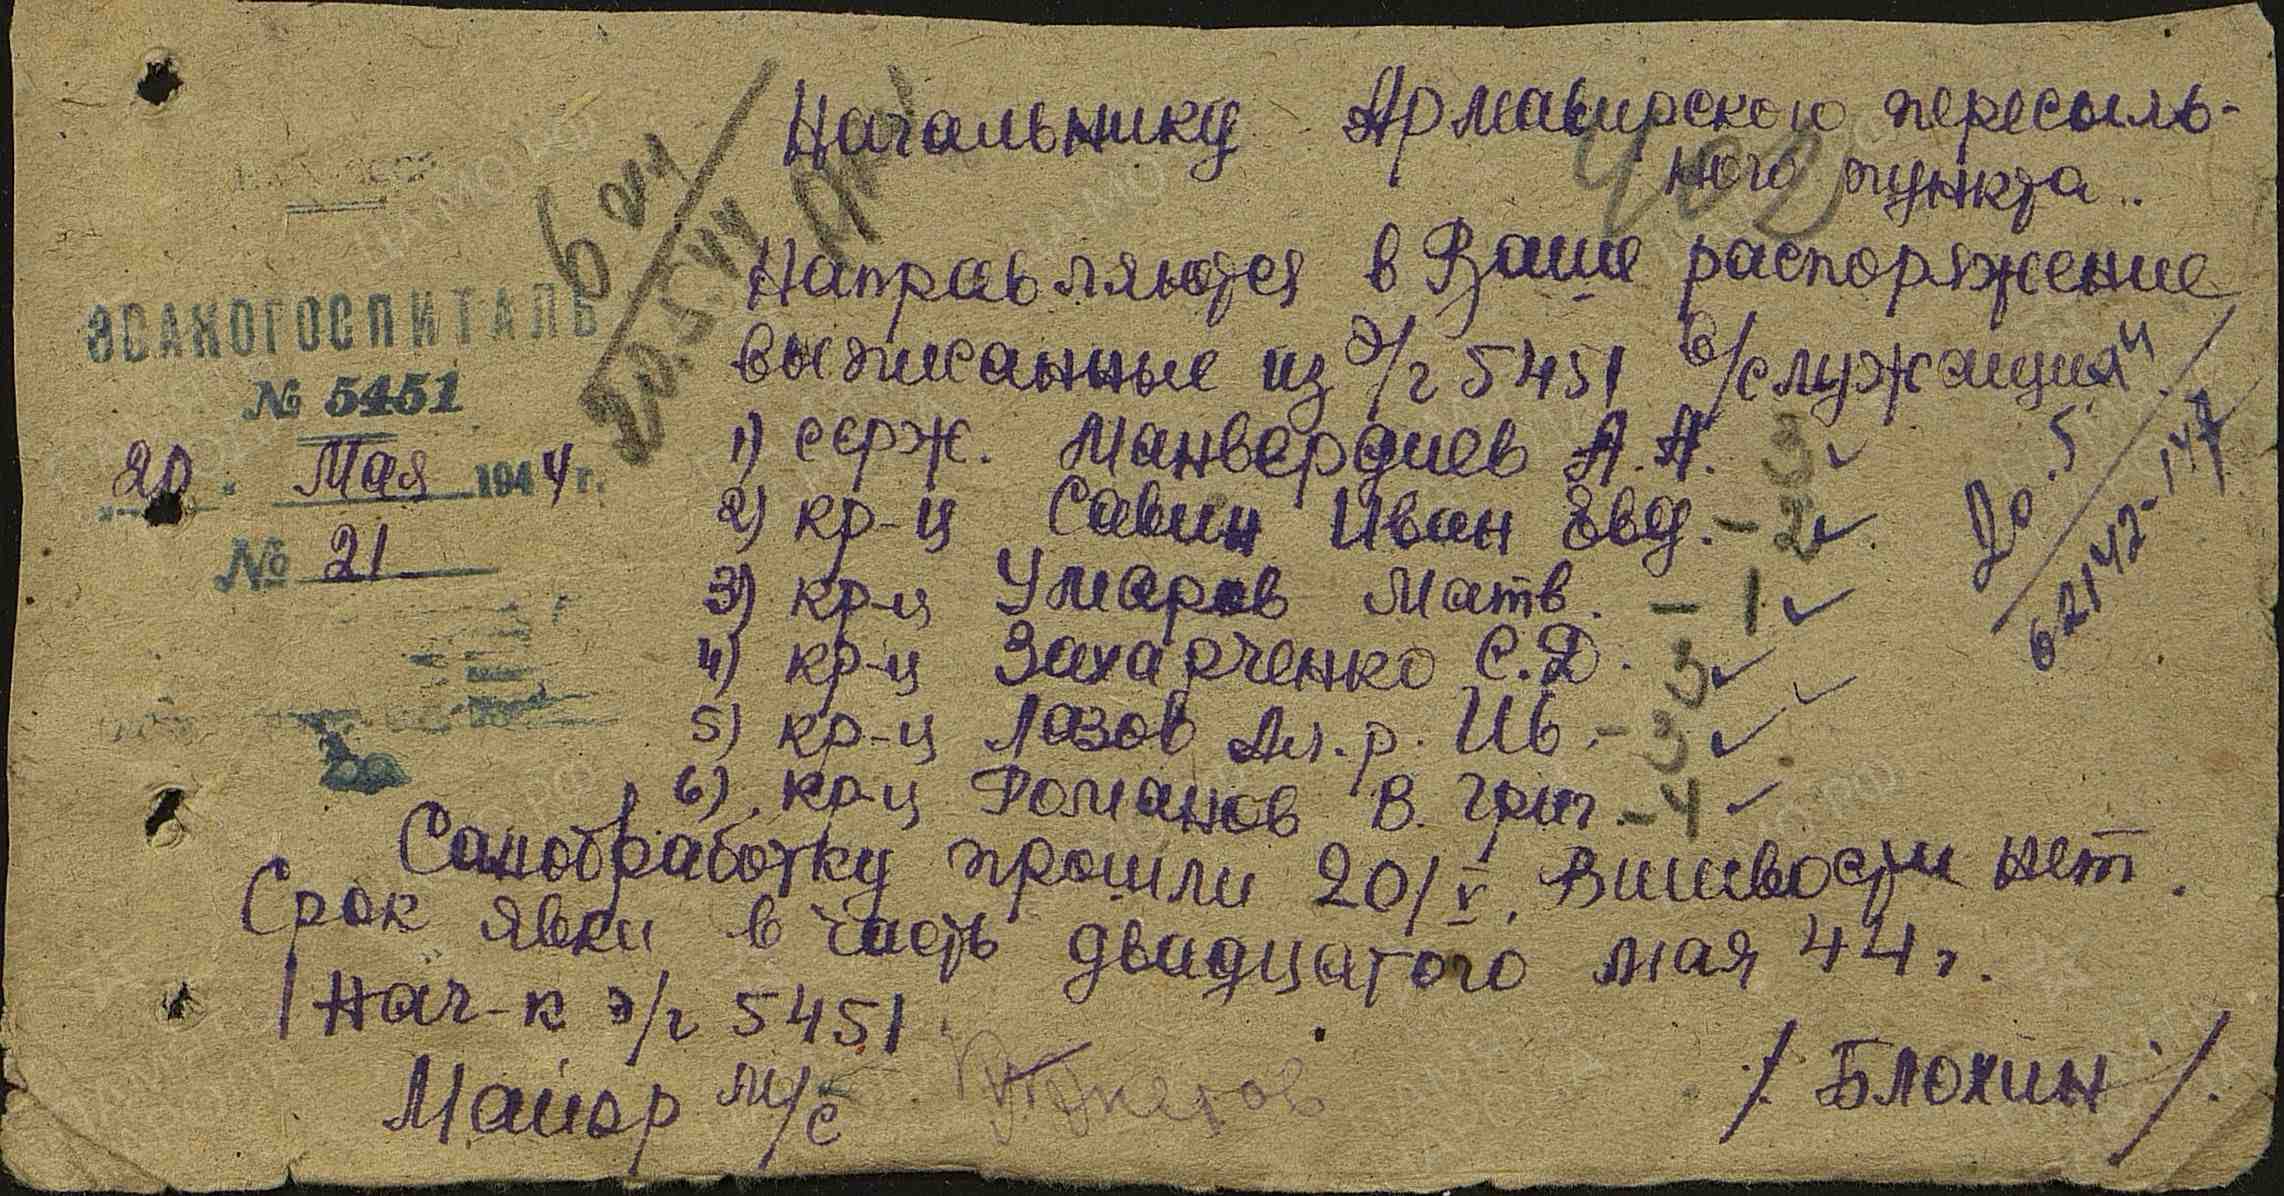 Начальнику Армавирского пересыль-
ного пункта.
402
6 чел
20.5.44
ЭВАКОГОСПИТАЛЬ
№ 5451
20 Мая 1944 г.
№ 21
Направляются в Ваше распоряжение
выписанные из э/г 5451 в/служащия
1) серж. Манвердиев А.А. 3
2) кр-ц Савин Иван Евд. - 2
3) кр-ц Умаров Матв. - 1
4) кр-ц Захарченко С.Д. 3
5) кр-ц Лазов Ал.р. Ив. - 3
6) кр-ц Романов В. Григ. - 4
20.5
62142-147
Санобработку прошли 20/V. Вшивости нет.
Срок явки в часть двадцатого мая 44 г.
Нач-к э/г 5451
Майор м/с
/Блохин/